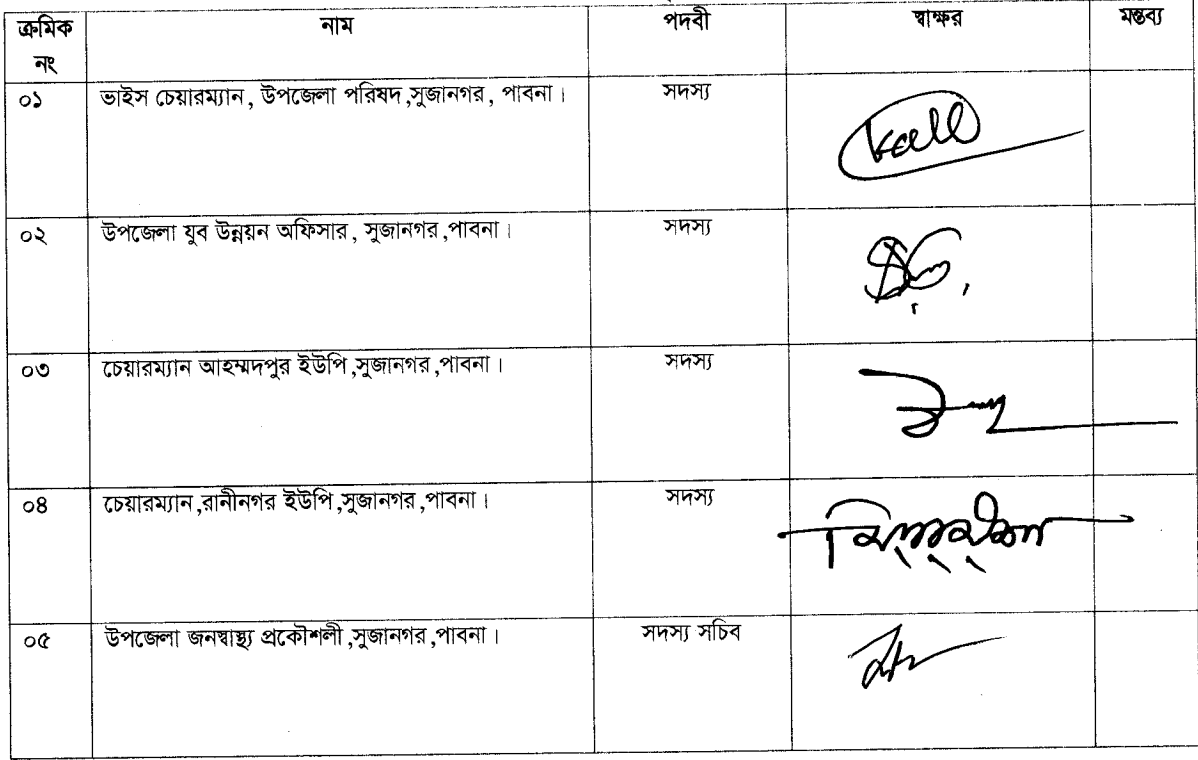 ক্রমিক নং নাম পদবী স্বাক্ষর মন্তব্য
০১ ভাইস চেয়ারম্যান, উপজেলা পরিষদ,সুজানগর, পাবনা। সদস্য
০২ উপজেলা যুব উন্নয়ন অফিসার, সুজানগর,পাবনা। সদস্য
০৩ চেয়ারম্যান আহম্মদপুর ইউপি,সুজানগর,পাবনা। সদস্য
০৪ চেয়ারম্যান,রানীনগর ইউপি,সুজানগর,পাবনা। সদস্য
০৫ উপজেলা জনস্বাস্থ্য প্রকৌশলী,সুজানগর,পাবনা। সদস্য সচিব